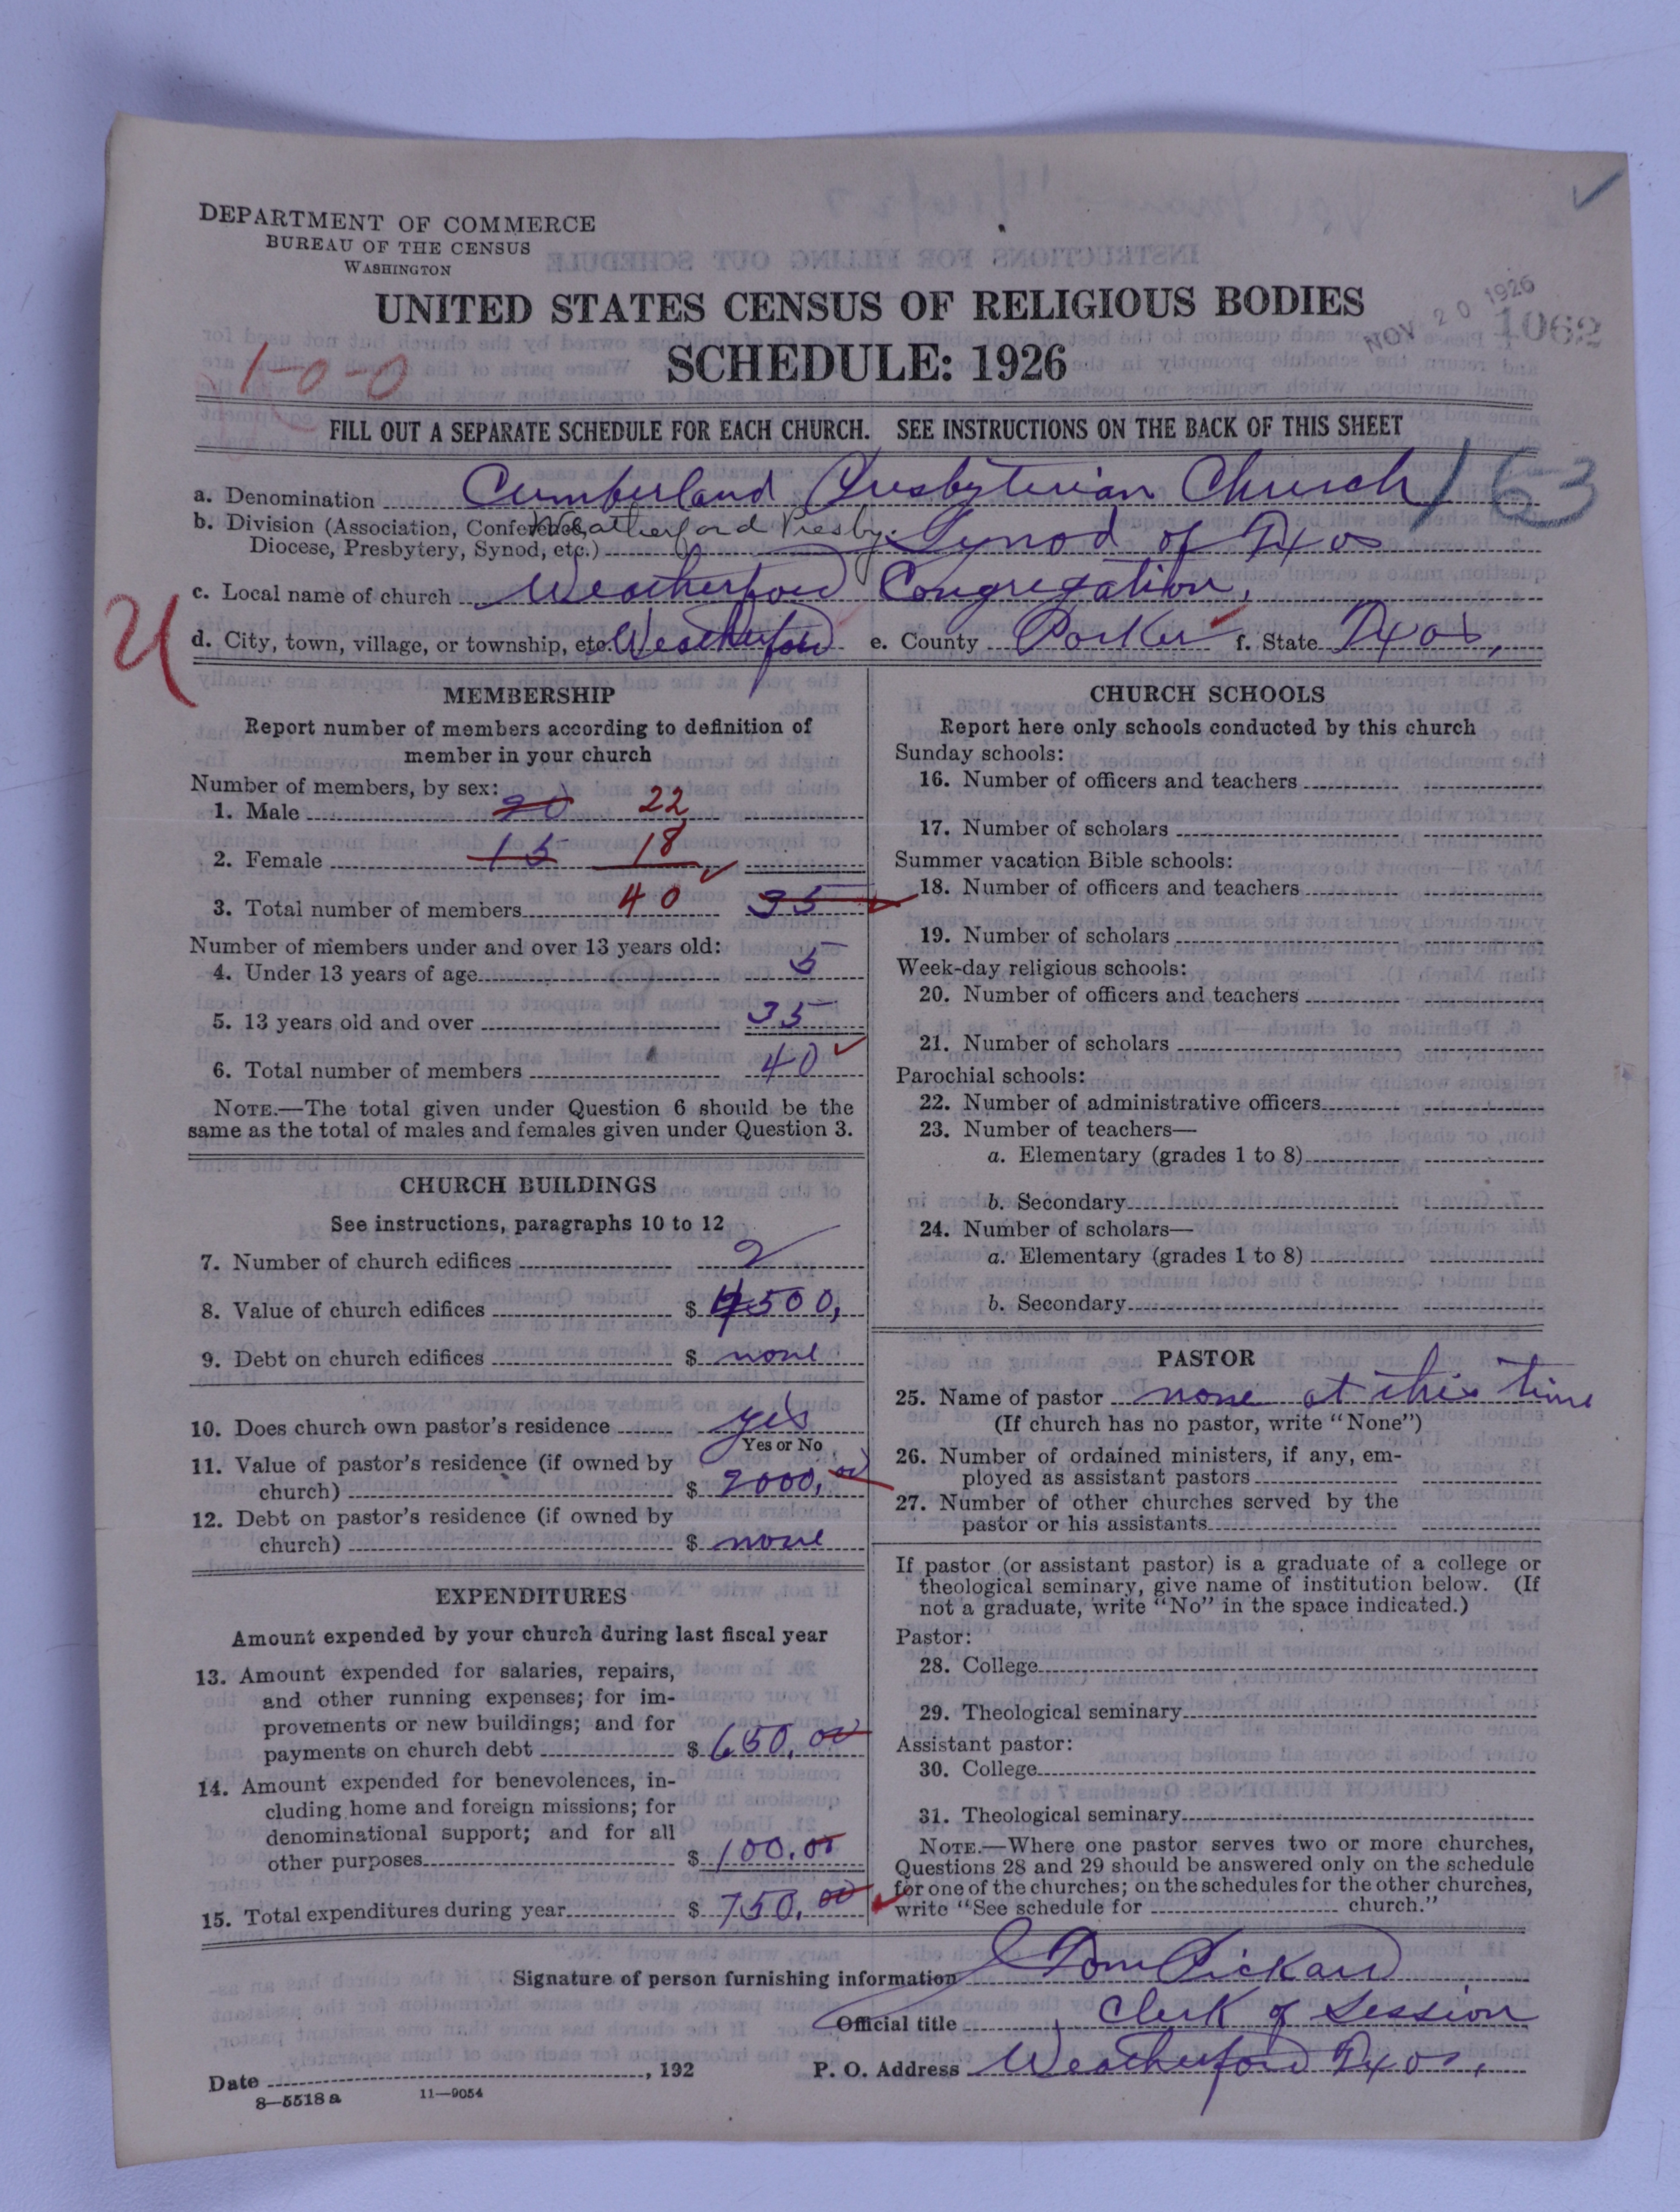 DEPARTMENT OF COMMERCE
BUREAU OF THE CENSUS
WASHINGTON
UNITED STATES CENSUS OF RELIGIOUS BODIES
NOV 20 1926 1062
SCHEDULE: 1926
1-0-0
FILL OUT A SEPARATE SCHEDULE FOR EACH CHURCH. SEE INSTRUCTIONS ON THE BACK OF THIS SHEET
a. Denomination Cumberland Presbyterian Church 163
b. Division (Association, Conference, Weatherford Presby. Synod of Texas
Diocese, Presbytery, Synod, etc.)
c. Local name of church Weatherford Congregation,
d. City, town, village, or township, etc. Weatherford e. County Parker f. State Texas,
MEMBERSHIP
Report number of members according to definition of
member in your church
Number of members, by sex:
1. Male 20 22
2. Female 15 18
3. Total number of members 40 35
Number of members under and over 13 years old:
4. Under 13 years of age 5
5. 13 years old and over 35
6. Total number of members 40
NOTE.—The total given under Question 6 should be the
same as the total of males and females given under Question 3.
CHURCH BUILDINGS
See instructions, paragraphs 10 to 12
7. Number of church edifices 2
8. Value of church edifices $ 4500,
9. Debt on church edifices $ none
10. Does church own pastor's residence yes
Yes or No
11. Value of pastor's residence (if owned by
church) $ 2000,00
12. Debt on pastor's residence (if owned by
church) $ none
EXPENDITURES
Amount expended by your church during last fiscal year
13. Amount expended for salaries, repairs,
and other running expenses; for im-
provements or new buildings; and for
payments on church debt $ 650.00
14. Amount expended for benevolences, in-
cluding home and foreign missions; for
denominational support; and for all
other purposes $ 100.00
15. Total expenditures during year $ 750.00
CHURCH SCHOOLS
Report here only schools conducted by this church
Sunday schools:
16. Number of officers and teachers
17. Number of scholars
Summer vacation Bible schools:
18. Number of officers and teachers
19. Number of scholars
Week-day religious schools:
20. Number of officers and teachers
21. Number of scholars
Parochial schools:
22. Number of administrative officers
23. Number of teachers—
a. Elementary (grades 1 to 8)
b. Secondary
24. Number of scholars—
a. Elementary (grades 1 to 8)
b. Secondary
PASTOR
25. Name of pastor none at this time
(If church has no pastor, write "None")
26. Number of ordained ministers, if any, em-
ployed as assistant pastors
27. Number of other churches served by the
pastor or his assistants
If pastor (or assistant pastor) is a graduate of a college or
theological seminary, give name of institution below. (If
not a graduate, write "No" in the space indicated.)
Pastor:
28. College
29. Theological seminary
Assistant pastor:
30. College
31. Theological seminary
NOTE.—Where one pastor serves two or more churches,
Questions 28 and 29 should be answered only on the schedule
for one of the churches; on the schedules for the other churches,
write "See schedule for church."
Signature of person furnishing information Tom Pickard
Official title Clerk of Session
Date , 192 P. O. Address Weatherford Texas,
8—5518 a 11—9054